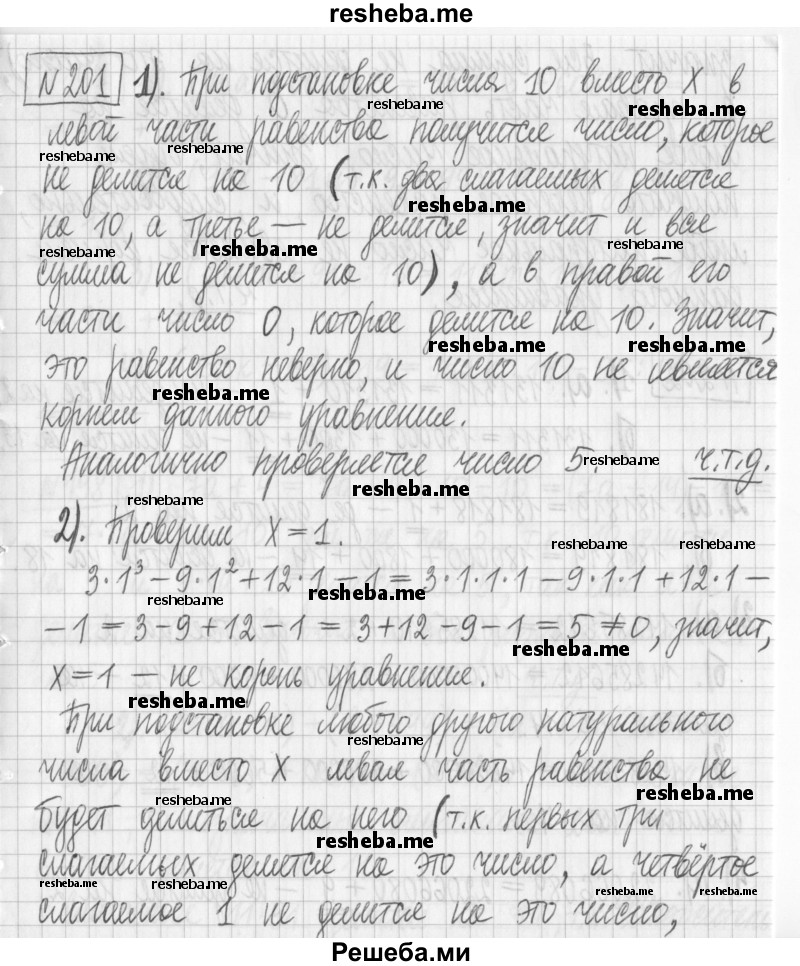 resheba.me
№201 1). При подстановке числа 10 вместо X в
resheba.me resheba.me
левой части равенства получится число, которое
resheba.me resheba.me
не делится на 10 (т.к. два слагаемых делятся
resheba.me
на 10, а третье — не делится, значит и вся
resheba.me resheba.me resheba.me
сумма не делится на 10), а в правой его
части число 0, которое делится на 10. Значит,
resheba.me resheba.me
это равенство неверно, и число 10 не является
resheba.me
корнем данного уравнения.
Аналогично проверяется число 5. ч.т.д.
resheba.me
resheba.me
resheba.me
2). Проверим X = 1.
resheba.me resheba.me
3·1³ − 9·1² + 12·1 − 1 = 3·1·1·1 − 9·1·1 + 12·1 −
resheba.me resheba.me
− 1 = 3 − 9 + 12 − 1 = 3 + 12 − 9 − 1 = 5 ≠ 0, значит,
resheba.me
X = 1 — не корень уравнения.
resheba.me
При подстановке любого другого натурального
resheba.me
числа вместо X левая часть равенства не
resheba.me
resheba.me
будет делиться на него (т.к. первых три
resheba.me
слагаемых делятся на это число, а четвёртое
resheba.me resheba.me resheba.me resheba.me
слагаемое 1 не делится на это число,
Решеба.ми